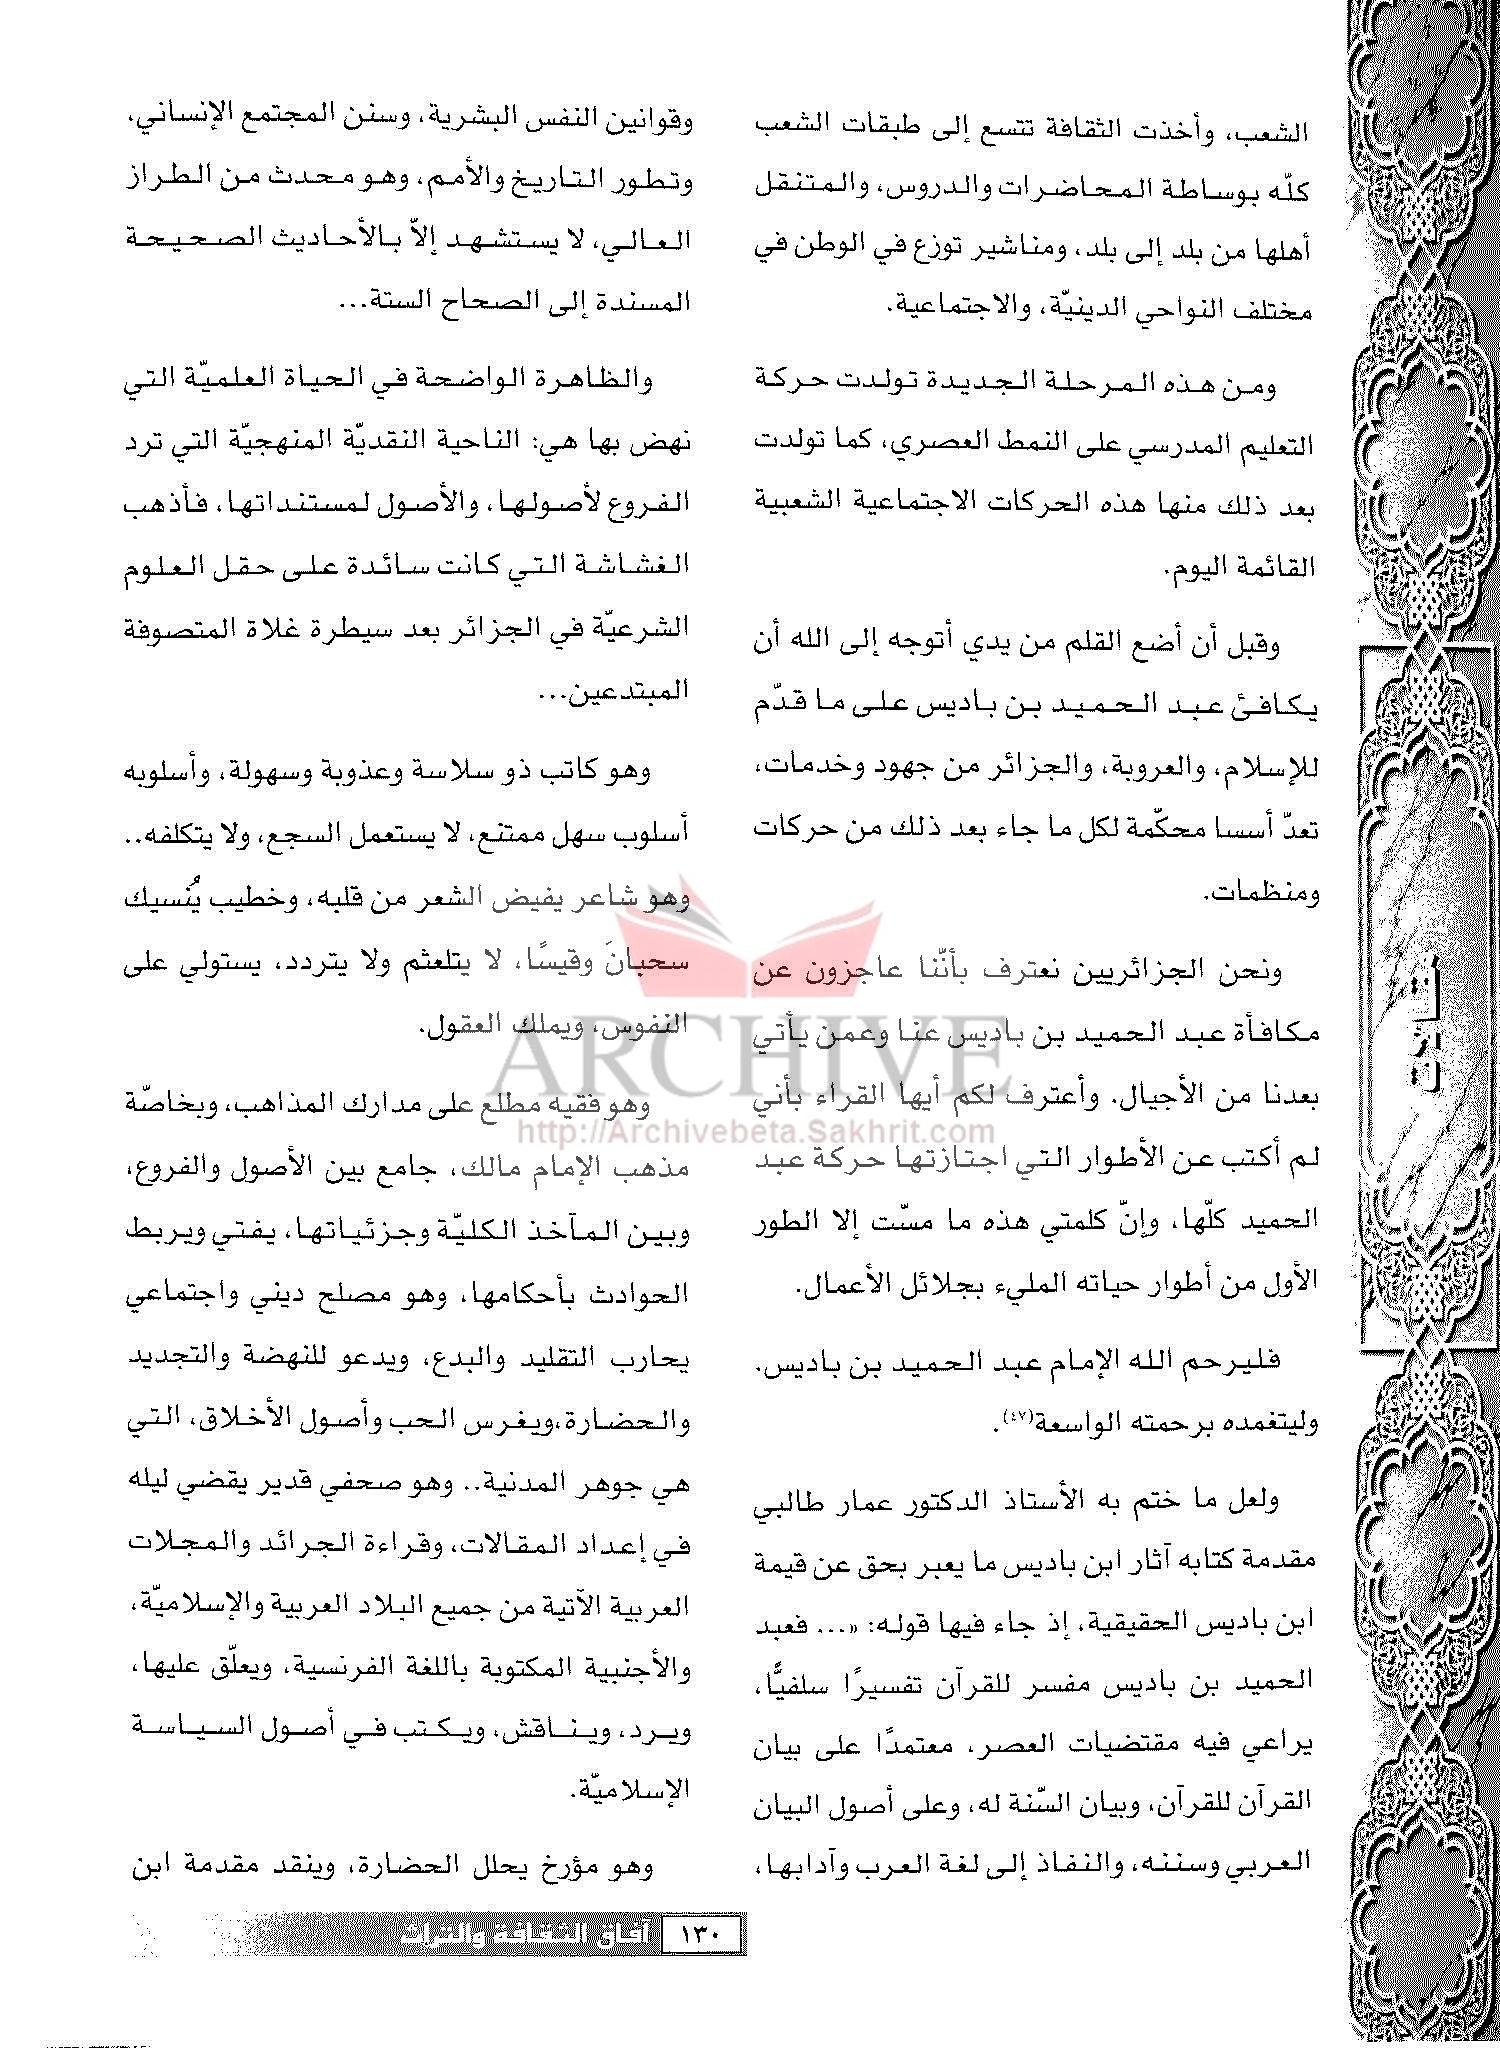 الشعب، وأخذت الثقافة تتسع إلى طبقات الشعب
كلّه بوساطة المحاضرات والدروس، والمتنقل
أهلها من بلد إلى بلد، ومناشير توزع في الوطن في
مختلف النواحي الدينيّة، والاجتماعية.
ومن هذه المرحلة الجديدة تولدت حركة
التعليم المدرسي على النمط العصري، كما تولدت
بعد ذلك منها هذه الحركات الاجتماعية الشعبية
القائمة اليوم.
وقبل أن أضع القلم من يدي أتوجه إلى الله أن
يكافئ عبد الحميد بن باديس على ما قدّم
للإسلام، والعروبة، والجزائر من جهود وخدمات،
تعدّ أسسا محكّمة لكل ما جاء بعد ذلك من حركات
ومنظمات.
ونحن الجزائريين نعترف بأنّنا عاجزون عن
مكافأة عبد الحميد بن باديس عنا وعمن يأتي
بعدنا من الأجيال. وأعترف لكم أيها القراء بأني
لم أكتب عن الأطوار التي اجتازتها حركة عبد
الحميد كلّها، وإنّ كلمتي هذه ما مسّت إلا الطور
الأول من أطوار حياته المليء بجلائل الأعمال.
فليرحم الله الإمام عبد الحميد بن باديس.
وليتغمده برحمته الواسعة(٤٧).
ولعل ما ختم به الأستاذ الدكتور عمار طالبي
مقدمة كتابه آثار ابن باديس ما يعبر بحق عن قيمة
ابن باديس الحقيقية، إذ جاء فيها قوله: «... فعبد
الحميد بن باديس مفسر للقرآن تفسيرًا سلفيًّا،
يراعي فيه مقتضيات العصر، معتمدًا على بيان
القرآن للقرآن، وبيان السّنة له، وعلى أصول البيان
العربي وسننه، والنفاذ إلى لغة العرب وآدابها،
وقوانين النفس البشرية، وسنن المجتمع الإنساني،
وتطور التاريخ والأمم، وهو محدث من الطراز
العالي، لا يستشهد إلاّ بالأحاديث الصحيحة
المسندة إلى الصحاح الستة...
والظاهرة الواضحة في الحياة العلميّة التي
نهض بها هي: الناحية النقديّة المنهجيّة التي ترد
الفروع لأصولها، والأصول لمستنداتها، فأذهب
الغشاشة التي كانت سائدة على حقل العلوم
الشرعيّة في الجزائر بعد سيطرة غلاة المتصوفة
المبتدعين...
وهو كاتب ذو سلاسة وعذوبة وسهولة، وأسلوبه
أسلوب سهل ممتنع، لا يستعمل السجع، ولا يتكلفه..
وهو شاعر يفيض الشعر من قلبه، وخطيب يُنسيك
سحبانَ وقيسًا، لا يتلعثم ولا يتردد، يستولي على
النفوس، ويملك العقول.
وهو فقيه مطلع على مدارك المذاهب، وبخاصّة
مذهب الإمام مالك، جامع بين الأصول والفروع،
وبين المآخذ الكليّة وجزئياتها، يفتي ويربط
الحوادث بأحكامها، وهو مصلح ديني واجتماعي
يحارب التقليد والبدع، ويدعو للنهضة والتجديد
والحضارة،ويغرس الحب وأصول الأخلاق، التي
هي جوهر المدنية.. وهو صحفي قدير يقضي ليله
في إعداد المقالات، وقراءة الجرائد والمجلات
العربية الآتية من جميع البلاد العربية والإسلاميّة،
والأجنبية المكتوبة باللغة الفرنسية، ويعلّق عليها،
ويرد، ويناقش، ويكتب في أصول السياسة
الإسلاميّة.
وهو مؤرخ يحلل الحضارة، وينقد مقدمة ابن
مقالات
ARCHIVE
http://Archivebeta.Sakhrit.com
١٣٠ آفاق الثقافة والتراث